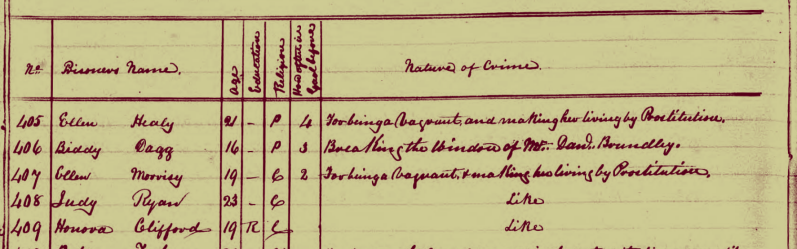 No. Prisoners Name. Age Education Religion How often in Gaol before Nature of Crime.
405 Ellen Healy 21 - P 4 For being a Vagrant and making her living by Prostitution.
406 Biddy Dagg 16 - P 3 Breaking the Window of Mr. Danl. Boundley.
407 Ellen Morrisy 19 - C 2 For being a Vagrant & making her living by Prostitution,
408 Judy Ryan 23 - C Like
409 Honora Clifford 19 R C Like